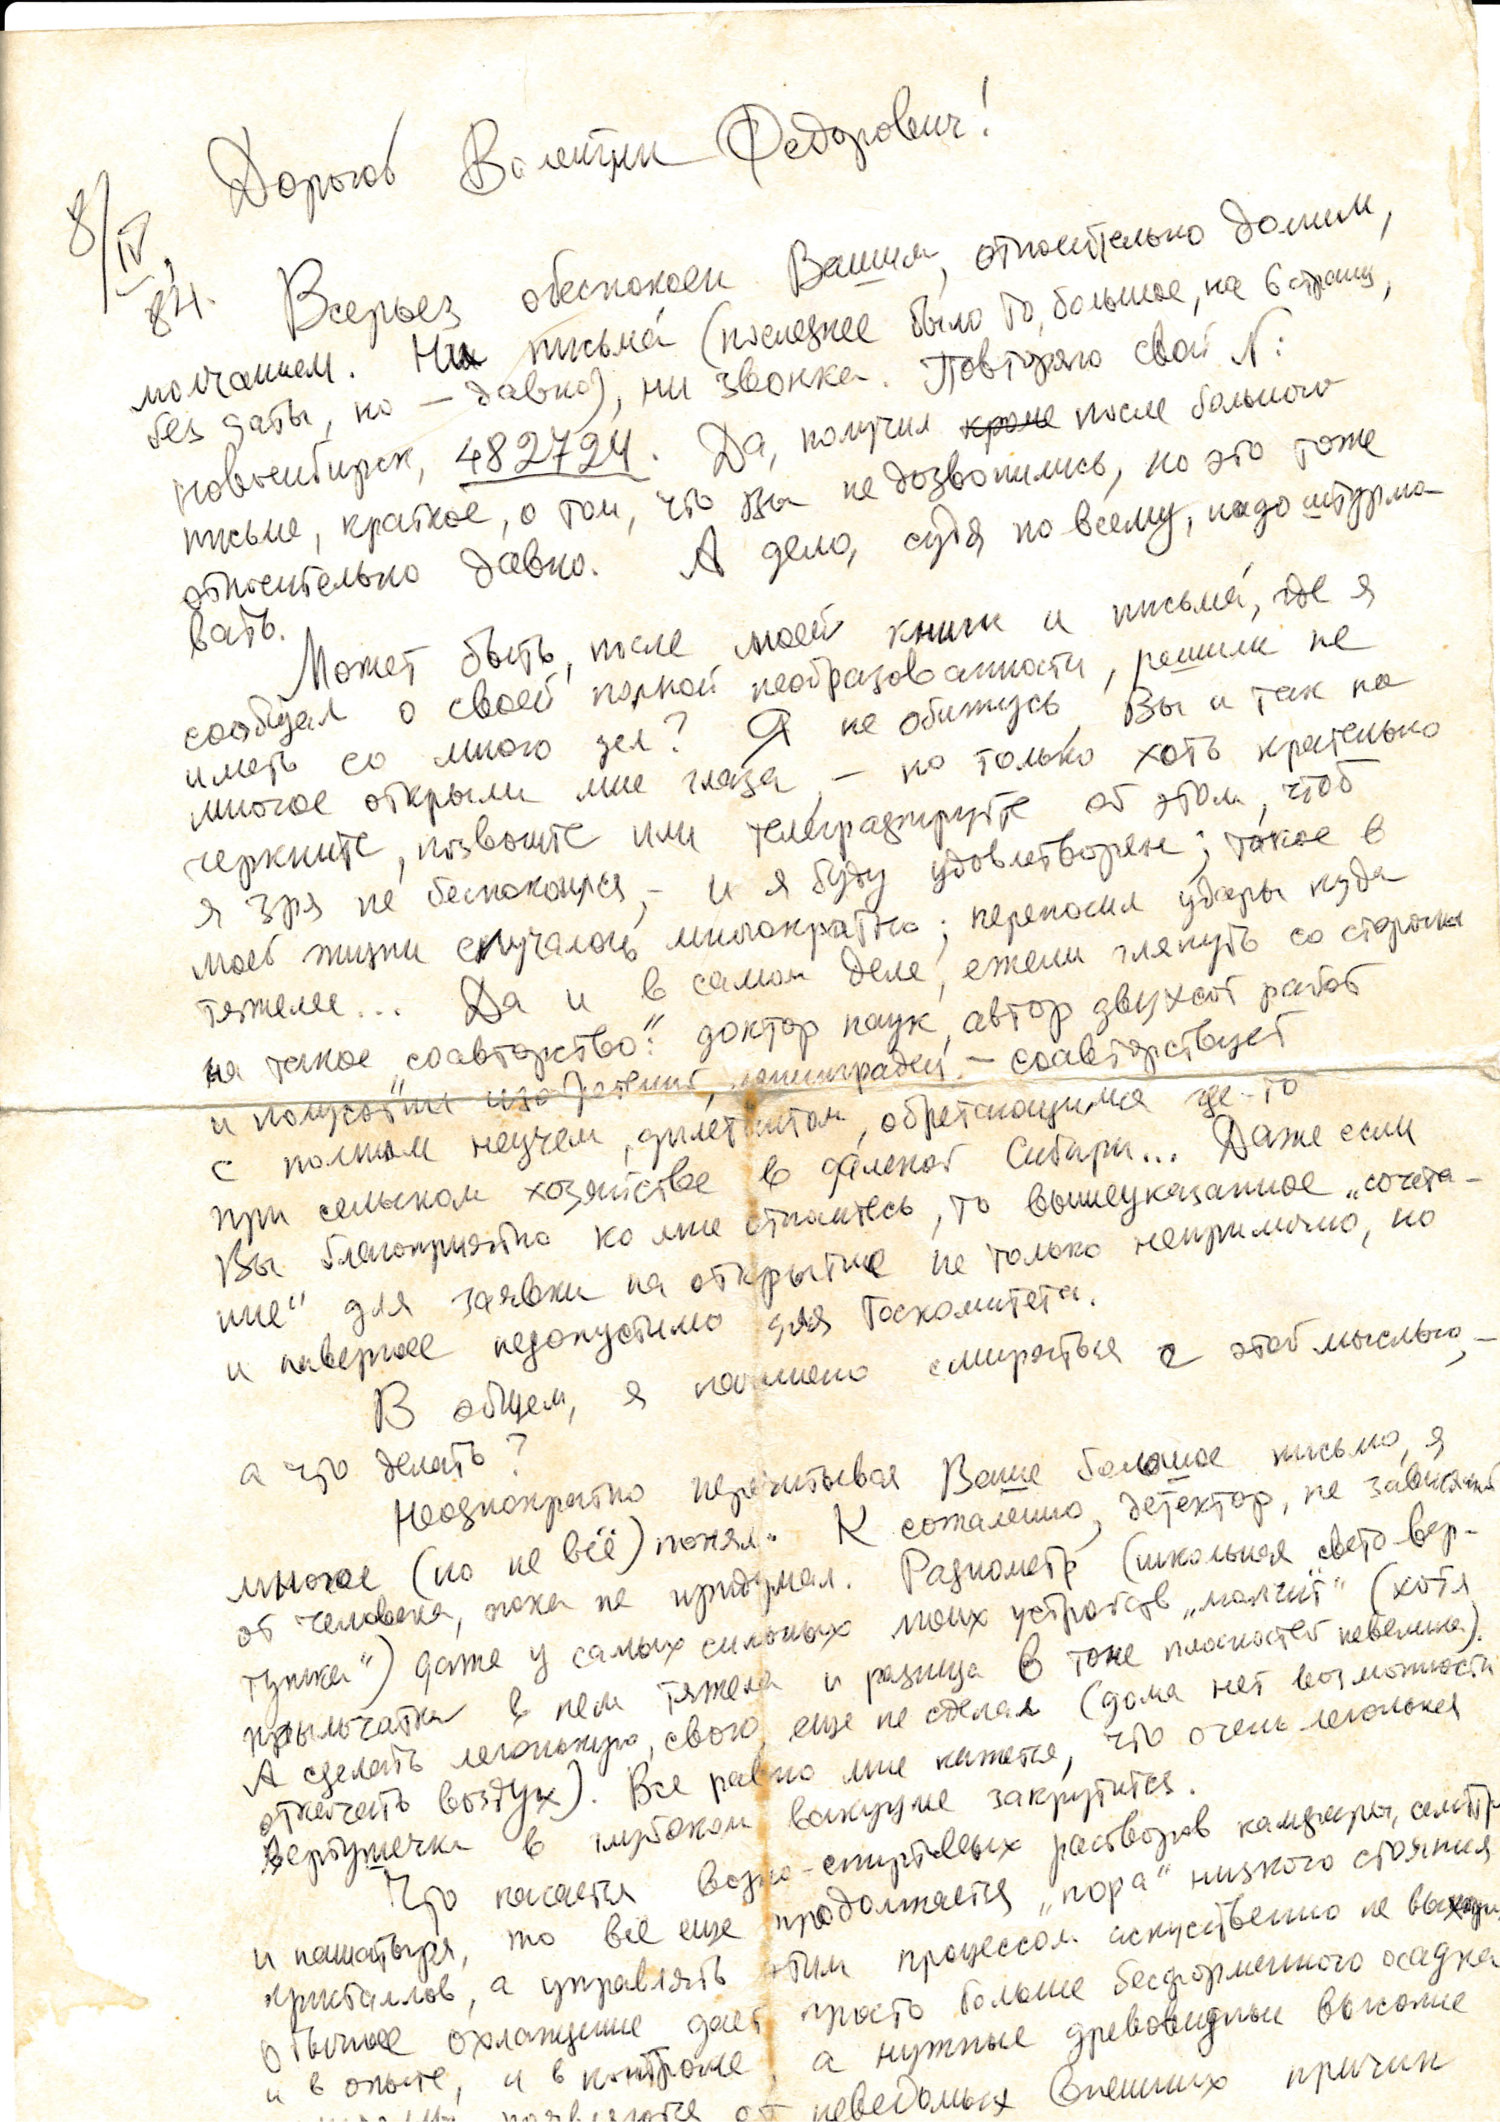 8/IV
84.
Дорогой Валентин Федорович!
Всерьез обеспокоен Вашим, относительно долгим,
молчанием. Ни письма (последнее было то, большое, на 6 страниц,
без даты, но – давно), ни звонка. Повторяю свой N:
Новосибирск, 482724. Да, получил кроме после большого
письме, краткое, о том, что Вы не дозвонились, но это тоже
относительно давно. А дело, судя по всему, надо штурмо-
вать.
Может быть, после моей книги и письма, где я
сообщал о своей полной необразованности, решили не
иметь со мною дел? Я не обижусь, Вы и так на
многое открыли мне глаза, – но только хоть кратенько
черкните, позвоните или телеграфируйте об этом, чтоб
я зря не беспокоился, – и я буду удовлетворен; такое в
моей жизни случалось многократно; переносил удары куда
тяжелее... Да и в самом деле, ежели глянуть со стороны
на такое „соавторство“: доктор наук, автор двухсот работ
и полусотни изобретений, ленинградец – соавторствует
с полным неучем, дилетантом, обретающимся где-то
при сельском хозяйстве в далекой Сибири... Даже если
Вы благоприятно ко мне отнеслись, то вышеуказанное „сочета-
ние“ для заявки на открытие не только неприлично, но
и наверное недопустимо для Госкомитета.
В общем, я помалу смиряться с этой мыслью, –
а что делать?
Неоднократно перечитывая Ваше большое письмо, я
многое (но не всё) понял. К сожалению, детектор, не зависящий
от человека, пока не придумал. Радиометр (школьная „свето-вер-
тушка“) даже у самых сильных моих устройств „молчит“ (хотя
крыльчатка в нем тяжела и разница в тоне плоскостей невелика).
А сделать легонькую, свою, еще не сделал (дома нет возможности
откачать воздух). Все равно мне кажется, что очень легонькая
вертушечка в глубоком вакууме закрутится.
Что касается водно-спиртовых растворов камфары, селитры
и нашатыря, то всё еще продолжается „пора“ низкого стояния
кристаллов, а управлять этим процессом искуственно не выходит,
обычное охлаждение дает просто больше бесформенного осадка
и в опыте, и в контроле, а нужные древовидные высокие
появляются от неведомых внешних причин